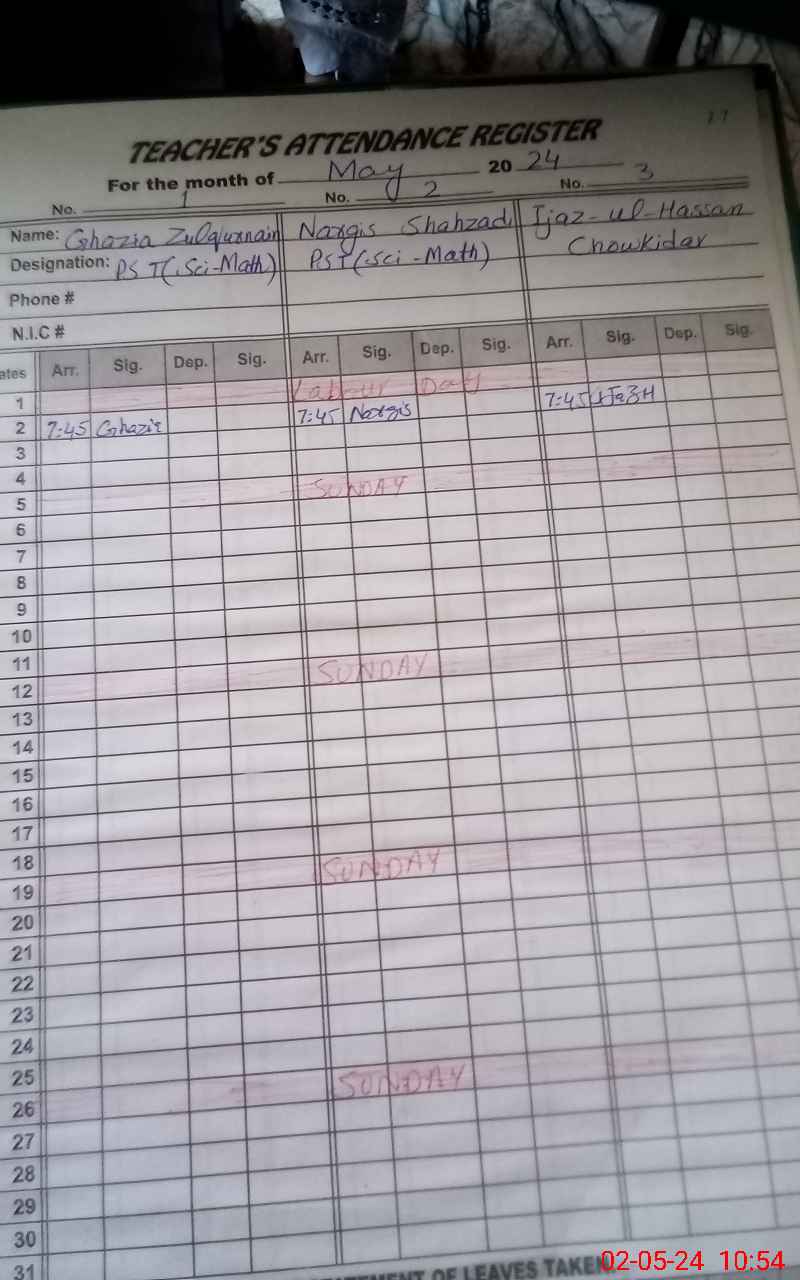 27
TEACHER'S ATTENDANCE REGISTER
For the month of May 2024
No. 1 No. 2 No. 3
Name: Ghazia Zulqurnain Nargis Shahzadi Ijaz-ul-Hassan
Designation: PST(Sci-Math) PST(Sci-Math) Chowkidar
Phone #
N.I.C #
ates Arr. Sig. Dep. Sig. Arr. Sig. Dep. Sig. Arr. Sig. Dep. Sig.
1 Labour Day
2 7:45 Ghazia 7:45 Nargis 7:45
3
4
5 SUNDAY
6
7
8
9
10
11
12 SUNDAY
13
14
15
16
17
18
19 SUNDAY
20
21
22
23
24
25
26 SUNDAY
27
28
29
30
31
TEMENT OF LEAVES TAKEN
02-05-24 10:54